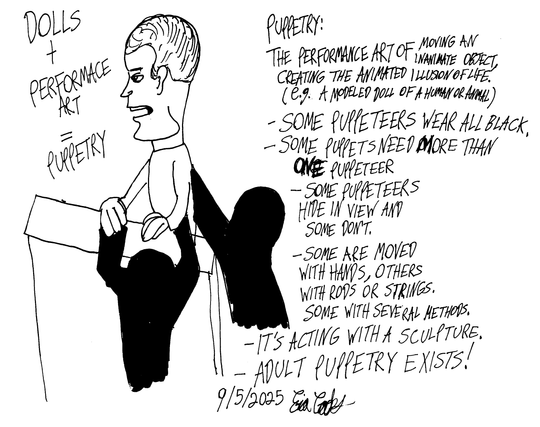 DOLLS
+
PERFORMACE
ART
=
PUPPETRY
PUPPETRY:
THE PERFORMANCE ART OF MOVING AN
INANIMATE OBJECT,
CREATING THE ANIMATED ILLUSION OF LIFE.
(e.g. A MODELED DOLL OF A HUMAN OR ANIMAL)
- SOME PUPPETEERS WEAR ALL BLACK.
- SOME PUPPETS NEED MORE THAN
ONE PUPPETEER
- SOME PUPPETEERS
HIDE IN VIEW AND
SOME DON'T.
- SOME ARE MOVED
WITH HANDS, OTHERS
WITH RODS OR STRINGS.
SOME WITH SEVERAL METHODS.
- IT'S ACTING WITH A SCULPTURE.
- ADULT PUPPETRY EXISTS!
9/5/2025